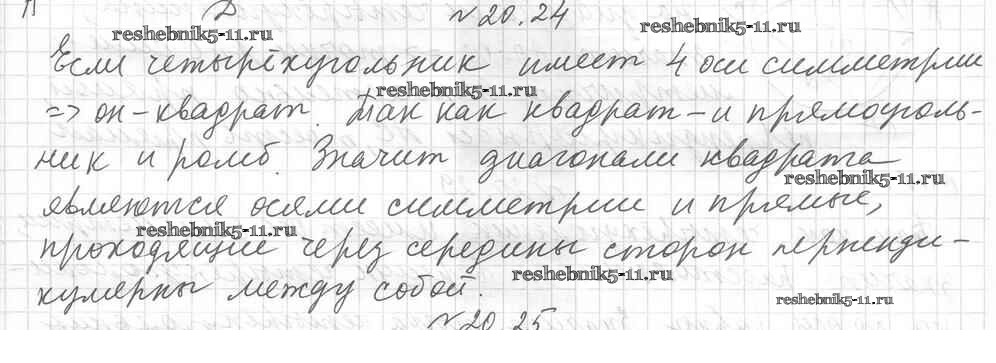 №20.24
reshebnik5-11.ru
reshebnik5-11.ru
Если четырёхугольник имеет 4 оси симметрии
reshebnik5-11.ru
=> он - квадрат. Так как квадрат - и прямоуголь-
ник и ромб. Значит диагонали квадрата
reshebnik5-11.ru
являются осями симметрии и прямые,
reshebnik5-11.ru
проходящие через середины сторон перпенди-
reshebnik5-11.ru
кулярны между собой.
reshebnik5-11.ru
№20.25